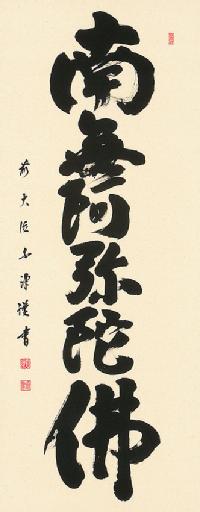 南無阿弥陀佛
前大徳
書